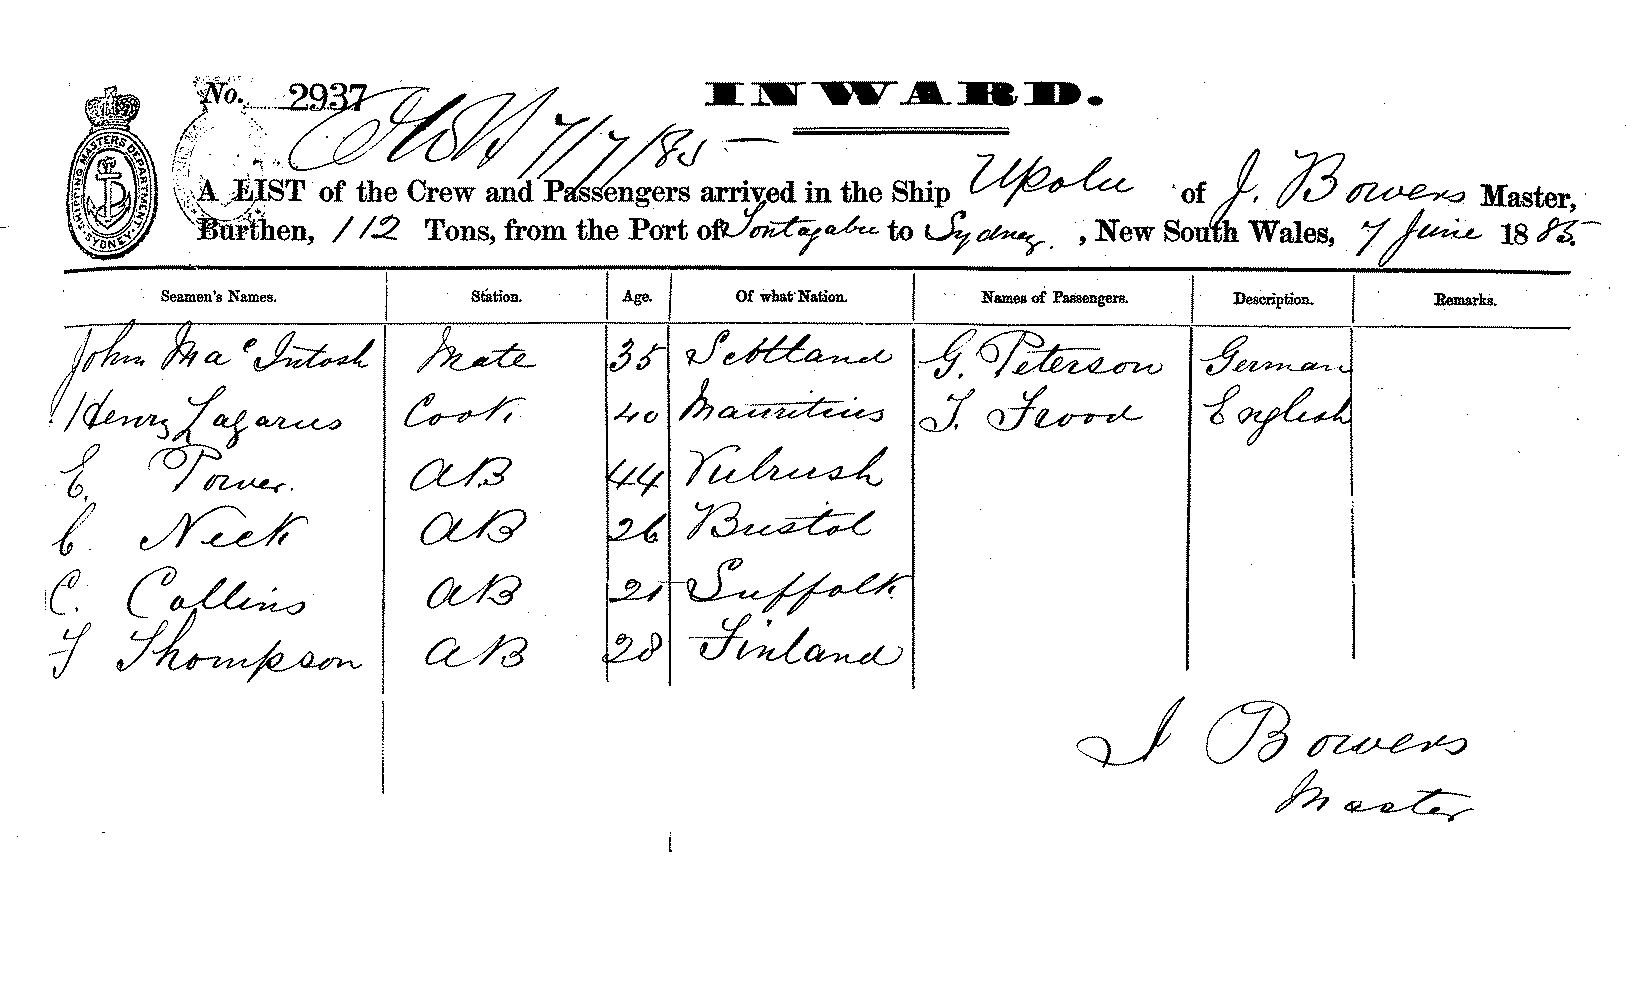 No. 2937
INWARD.
7/7/85
A LIST of the Crew and Passengers arrived in the Ship Upolu of J. Bowers Master,
Burthen, 112 Tons, from the Port of Tongatabu to Sydney, New South Wales, 7 June 1885.
SHIPPING MASTERS DEPARTMENT SYDNEY
Seamen's Names. Station. Age. Of what Nation. Names of Passengers. Description. Remarks.
John Mac Intosh Mate 35 Scotland G. Peterson German
Henry Lazarus Cook 40 Mauritius T. Frood English
E. Power. AB 44
C. Neck AB 26 Bristol
C. Collins AB 21 Suffolk
F Thompson AB 28 Finland
J Bowers
Master